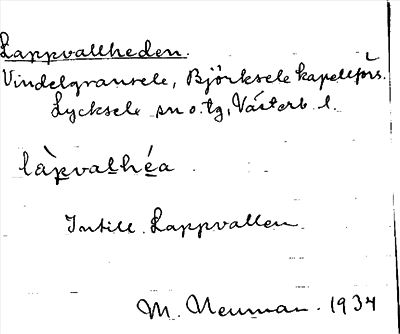 Lappvallheden.
Vindelgransele, Björksele kapellförs.
Lycksele sn o. tg, Västerb. l.
làpvalhéa
Intill Lappvallen
M. Neuman. 1934